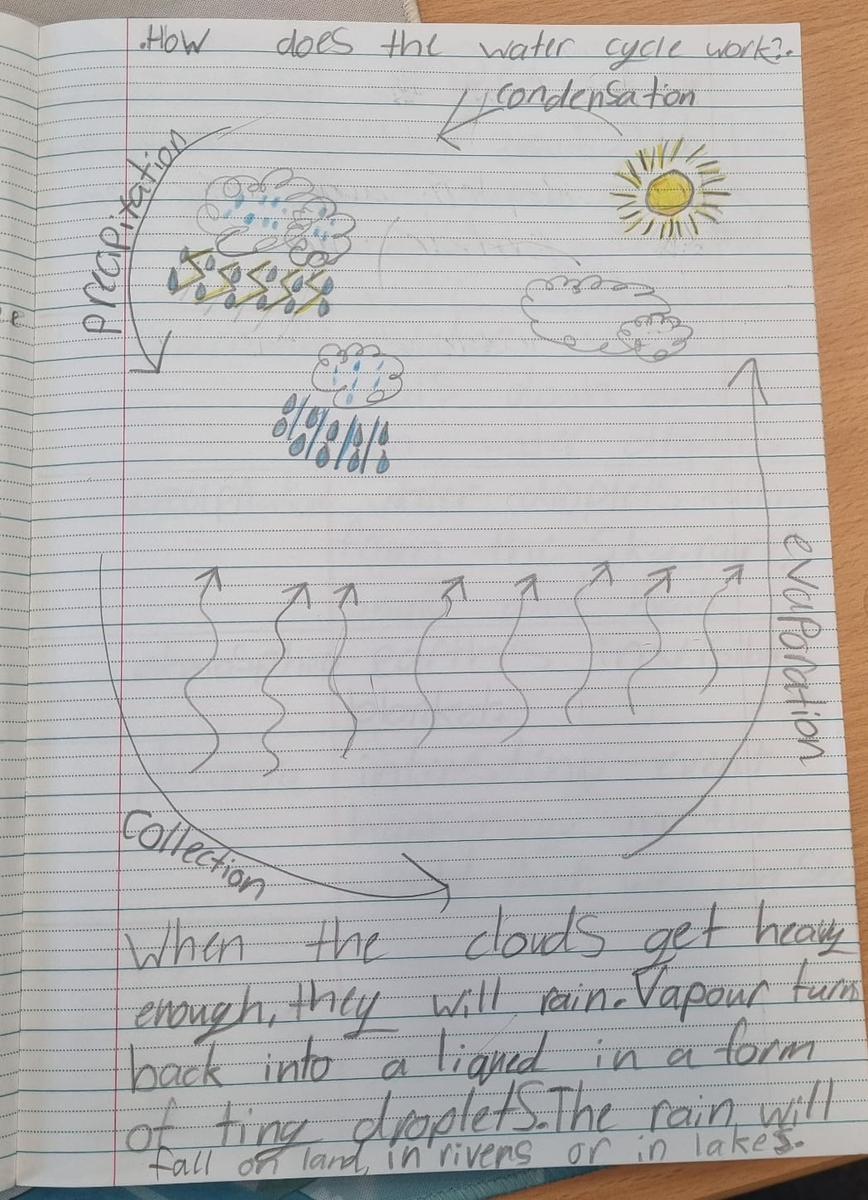 .How does the water cycle work?.
condensation
precipitation
evaporation
Collection
When the clouds get heavy
enough, they will rain. Vapour turn
back into a liqued in a form
of ting droplets. The rain will
fall on land, in rivers or in lakes.
e